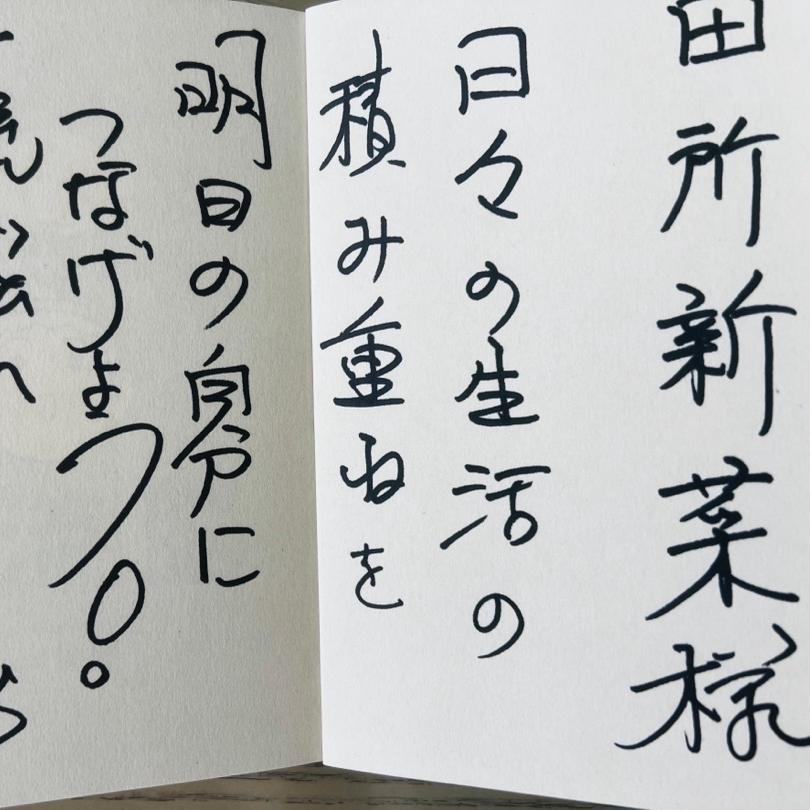 田所新菜様
日々の生活の
積み重ねを
明日の自分に
つなげよう!